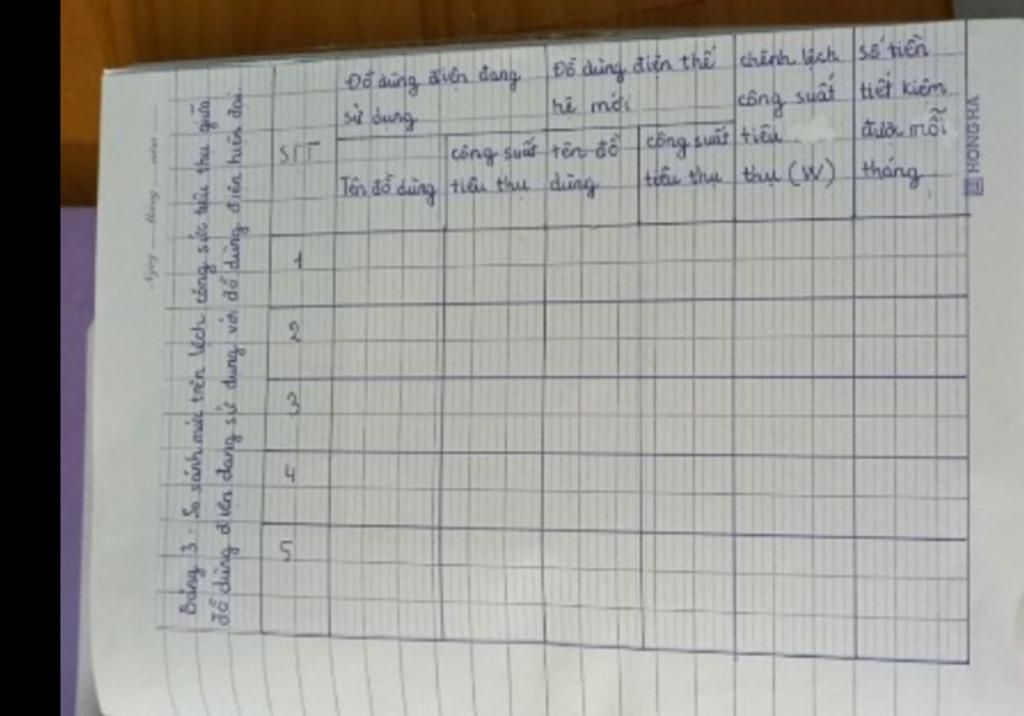 Ngày tháng năm
Bảng 3: So sánh mức trên lệch công sức tiêu thụ giữa
đồ dùng điện đang sử dụng với đồ dùng điện hiện đại.
STT
Đồ dùng điện đang
sử dụng
Tên đồ dùng
công suất
tiêu thụ
Đồ dùng điện thế
hệ mới
tên đồ
dùng
công suất
tiêu thụ
chênh lệch
công suất
tiêu
thụ (W)
số tiền
tiết kiệm
được mỗi
tháng
1
2
3
4
5
HONG HA